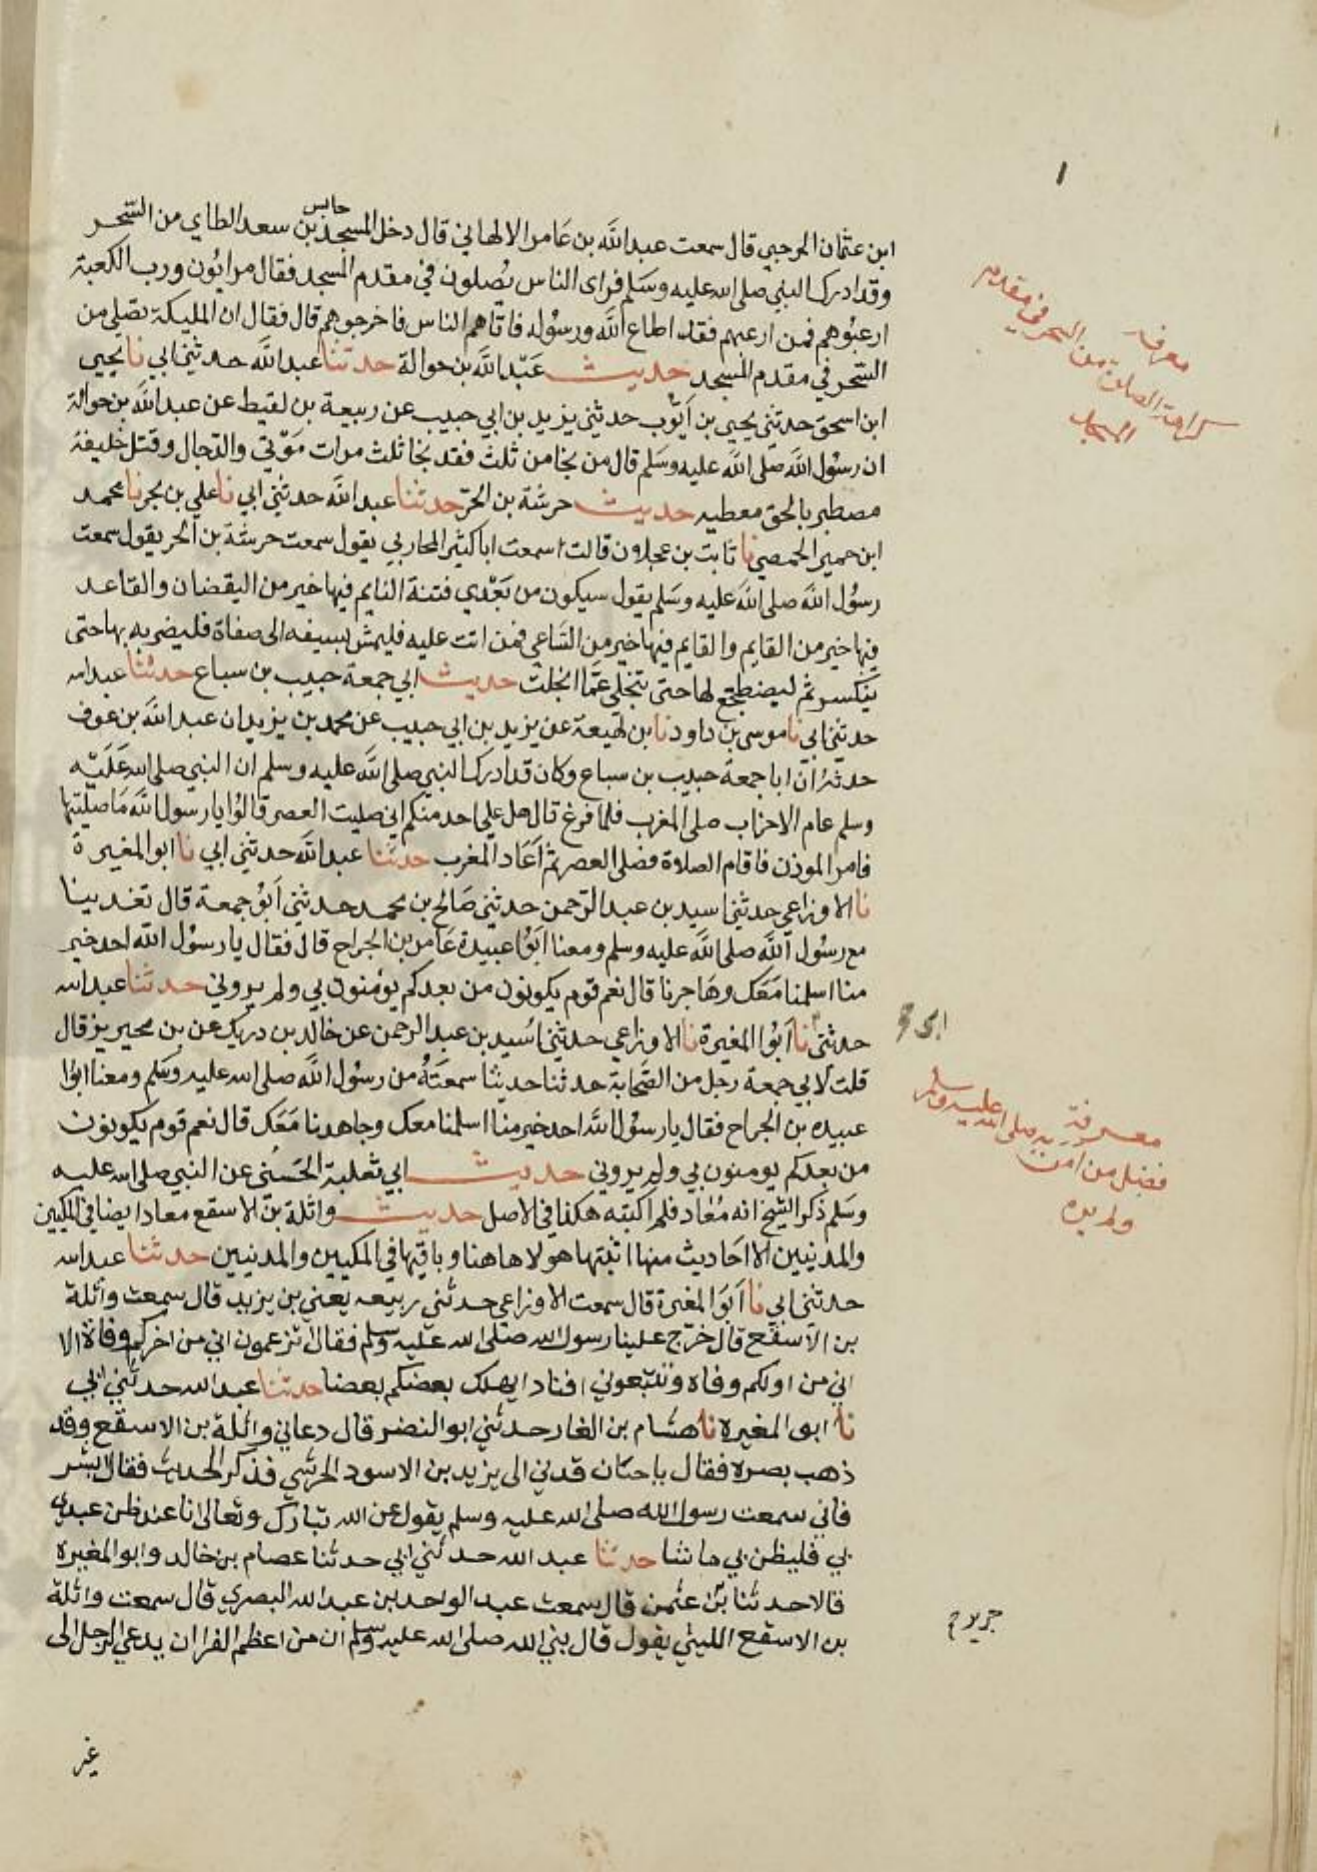 ا
حابس
ابن عثمان الرحبي قال سمعت عبد الله بن عامر الالهاني قال دخل المسجد بن سعد الطاي من السّحر
وقد ادرك النبي صلى الله عليه وسلم فراى الناس يُصلون في مقدم المسجد فقال مراؤون ورب الكعبة
ارعبُوهم فمن ارعبهم فقد اطاع الله ورسوله فاتاهم الناس فاخرجوهم قال فقال ان المليكة تصلي من
السّحر في مقدم المسجد حديث عبد الله بن حوالة حدثنا عبد الله حدثني ابي نا يحيى
ابن اسحق حدثني يحيى بن ايّوب حدثني يزيد بن ابي حبيب عن ربيعة بن لقيط عن عبد الله بن حوالة
ان رسول الله صلى الله عليه وسلم قال من نجا من ثلث فقد نجا ثلث مرات مَوْتي والدجال وقتل خليفة
مصطبر بالحق معطيه حديث حرشة بن الحرّ حدثنا عبد الله حدثني ابي نا علي بن بحر نا محمد
ابن حمير الحمصي نا ثابت بن عجلان قالت سمعت ابا كثير المحاربي يقول سمعت حرشة بن الحر يقول سمعت
رسُول الله صلى الله عليه وسَلم يقول سيكون من بَعْدي فتنة النايم فيها خير من اليقضان والقاعد
فيها خير من القايم والقايم فيها خير من السَّاعي فمن اتت عليه فليمش بسيفه الى صفاة فليضربه بها حتى
ينكسر ثم ليضطجع لها حتى تنجلي عمّا انجلت حديث ابي جمعة حبيب بن سباع حدثنا عبد الله
حدثني ابي نا موسى بن داود نا بن لهيعة عن يزيد بن ابي حبيب عن محمد بن يزيد ان عبد الله بن عوف
حدثهُ ان ابا جمعة حبيب بن سباع وكان قد ادرك النبي صلى الله عليه وسلم ان النبي صلى الله عليه
وسلم عام الاحزاب صلى المغرب فلما فرغ قال هل علم احد منكم اني صليت العصر قالوا يا رسول الله مَا صليتها
فامر الموذن فاقام الصلاة فصلى العصر ثم اَعَاد المغرب حدثنا عبد الله حدثني ابي نا ابو المغيرة
نا الاوزاعي حدثني اسيد بن عبد الرّحمن حدثني صَالح بن محمد حدثني اَبو جمعة قال تغدينا
مع رسُول الله صلى الله عليه وسلم ومعنا ابُو عبيدة عَامر بن الجراح قال فقال يا رسُول الله احد خير
منا اسلمنا مَعَك وهَاجرنا قال نعم قوم يكونون من بعدكم يؤمنون بي ولم يروني حدثنا عبد الله
حدثني نا اَبُو المغيرة نا الاوزاعي حدثني اسُيد بن عبد الرحمن عن خالد بن دريك عن بن محيريز قال
قلت لابي جمعة رجل من الصّحابة حدثنا حديثا سمعتَهُ من رسُول الله صلى الله عليه وسَلم ومعنا ابوُا
عبيده بن الجراح فقال يا رسُول الله احد خير منا اسلمنا معك وجاهدنا مَعَك قال نعم قوم يكونون
من بعدكم يومنون بي ولم يروني حديث ابي ثعلبة الخَشني عن النبي صلى الله عليه
وسَلم ذكر الشيخ انه مُعَاد فلم اكتبه هكذا في الاصل حديث واثلة بن الاسقع معاد ايضا في المكيين
والمدنيين الا احَاديث منها اثبتها هولا هاهنا وباقيها في المكيين والمدنيين حدثنا عبد الله
حدثني ابي نا اَبُو المغيرة قال سمعت الاوزاعي حدثني ربيعه يعني بن يزيد قال سمعت واثلة
بن الاسقع قال خرج علينا رسول الله صلى الله عليه وسلم فقال اتزعمون اني من اخركم وفاة الا
اني من اولكم وفاه وتتبعوني افنادا يهلك بعضكم بعضا حدثنا عبد الله حدثني ابي
نا ابو المغيره نا هشام بن الغاز حدثني ابو النضر قال دعاني واثلة بن الاسقع وقد
ذهب بصره فقال يا حبان قدني الى يزيد بن الاسود الجرشي فذكر الحديث فقال ابشر
فاني سمعت رسول الله صلى الله عليه وسلم يقول عن الله تبارك وتعالى انا عند ظن عبدي
بي فليظن بي ما شا حدثنا عبد الله حدثني ابي حدثنا عصام بن خالد وابو المغيره
قالا حدثنا بن عثمن قال سمعت عبد الواحد بن عبد الله البصري قال سمعت واثلة
بن الاسقع الليثي يقول قال نبي الله صلى الله عليه وسلم ان من اعظم الفرا ان يدعي الرجل الى
غير
معرفة
كراهة الصلاة من السحر في مقدم
المسجد
ابي
معرفة
فضل من امن به صلى الله عليه وسلم
ولم يره